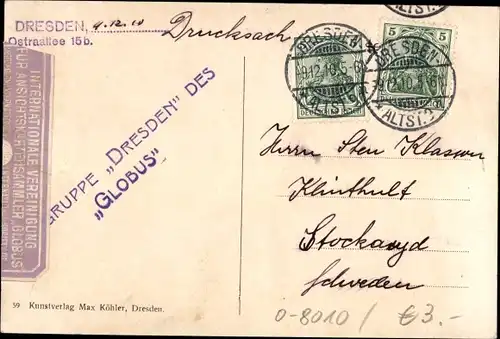 DRESDEN, 9.12.10
Ostraallee 15b.
Drucksach
DRESDEN-
9.12.10.5
ALTST.2
DRESDEN-
ALTST.2
5
5
INTERNATIONALE VEREINIGUNG
FÜR ANSICHTSKARTENSAMMLER „GLOBUS"
GRUPPE „DRESDEN" DES
„GLOBUS"
Herrn Sten Klasson
Klinthult
Stockaryd
Schweden
59 Kunstverlag Max Köhler, Dresden.
0-8010 / € 3.-